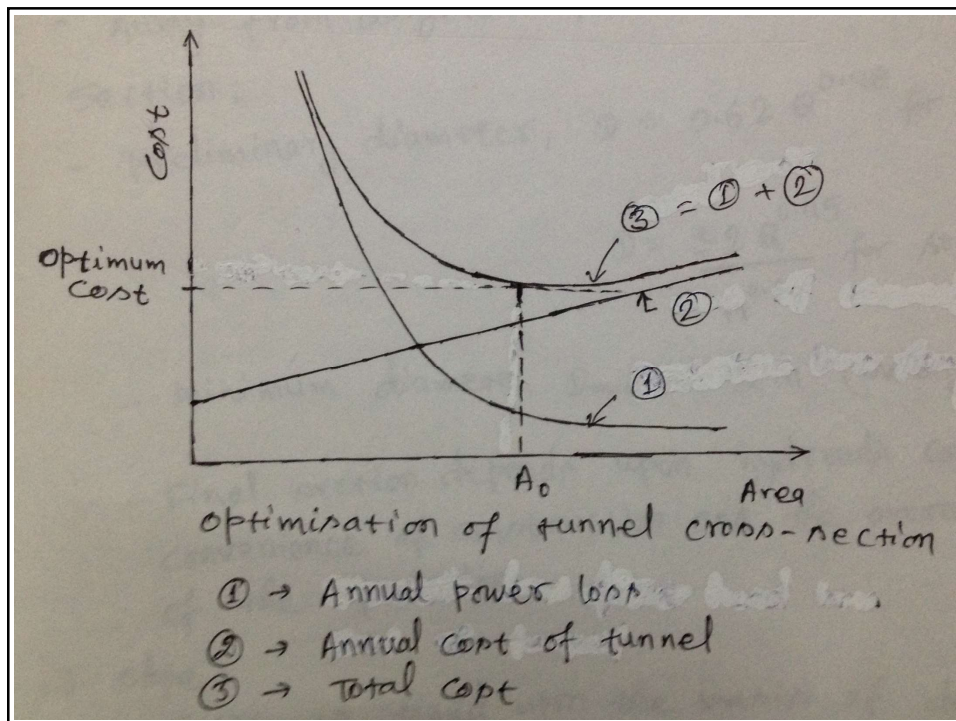 Cost
③ = ① + ②
Optimum
Cost
②
①
A₀
Area
Optimisation of tunnel cross-section
① → Annual power loss
② → Annual cost of tunnel
③ → Total cost